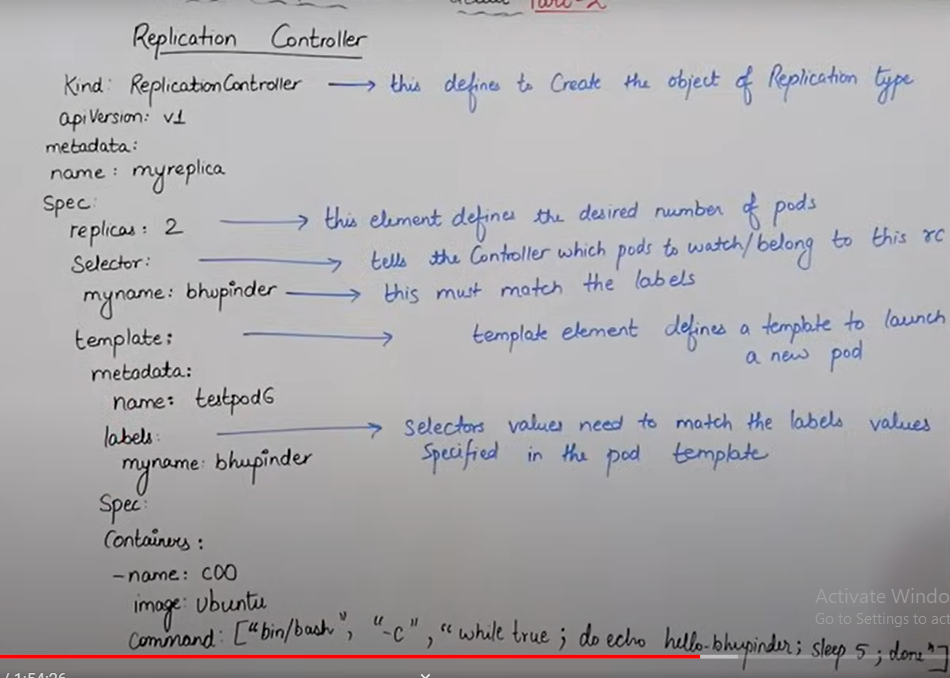 Part-2
Replication Controller
Kind: ReplicationController → this defines to Create the object of Replication type
apiVersion: v1
metadata:
name: myreplica
Spec:
replicas: 2 → this element defines the desired number of pods
Selector: → tells the Controller which pods to watch/belong to this rc
myname: bhupinder → this must match the labels
template: → template element defines a template to launch
a new pod
metadata:
name: testpod6
labels: → Selectors values need to match the labels values
Specified in the pod template
myname: bhupinder
Spec:
Containers:
-name: c00
image: Ubuntu
Command: ["bin/bash", "-c", "while true; do echo hello-bhupinder; sleep 5; done"]
Activate Windo
Go to Settings to act
/ 1:54:26